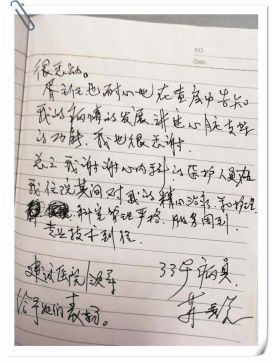 NO.
Date.
很感动。
主任也耐心地在查房中告知
我的病情的发展讲述心脏支架
的功能,我也很感谢。
总之我谢谢心内科的医护人员在
我住院其间对我的精心治疗和护理
科室管理严格,服务周到
专业技术到位
建议医院领导
给予她们表扬。
33床病员